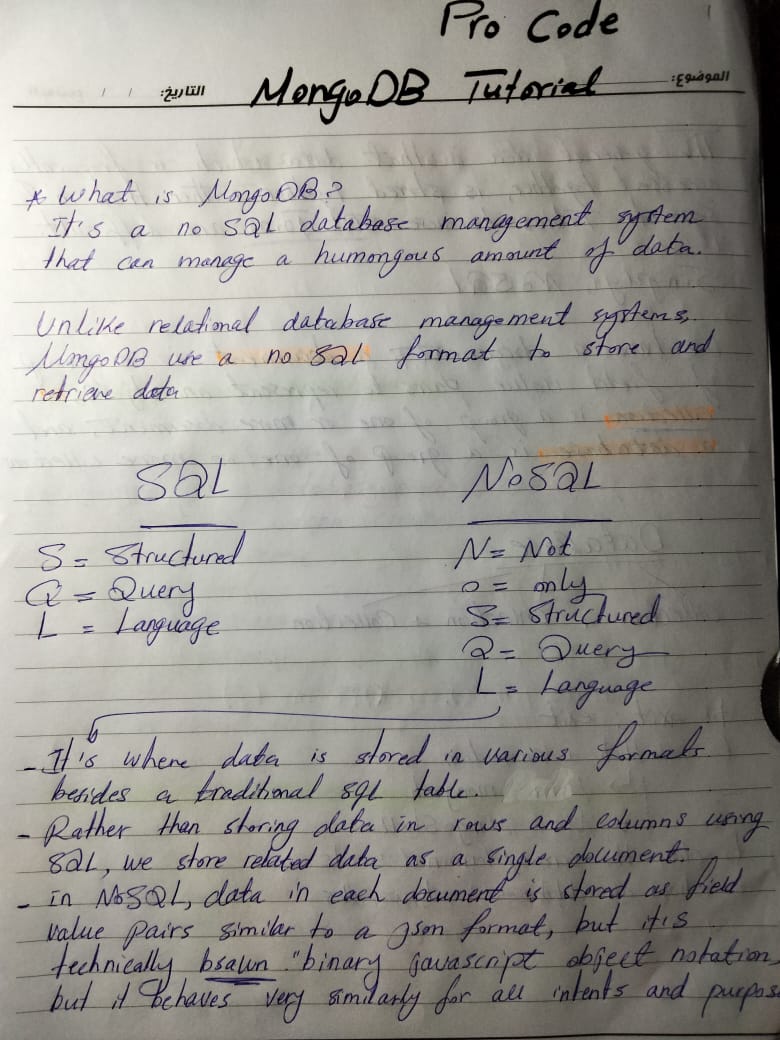 Pro Code
الموضوع: MongoDB Tutorial التاريخ: / /
* What is MongoDB?
It's a no SQL database management system
that can manage a humongous amount of data.
Unlike relational database management systems,
MongoDB use a no SQL format to store and
retrieve data
SQL
S = Structured
Q = Query
L = Language
NoSQL
N = Not
o = only
S = Structured
Q = Query
L = Language
- It's where data is stored in various formats
besides a traditional sql table.
- Rather than storing data in rows and columns using
SQL, we store related data as a single document.
- in NoSQL, data in each document is stored as field
value pairs similar to a json format, but it's
technically bsawn "binary javascript object notation,
but it behaves very similarly for all intents and purpos